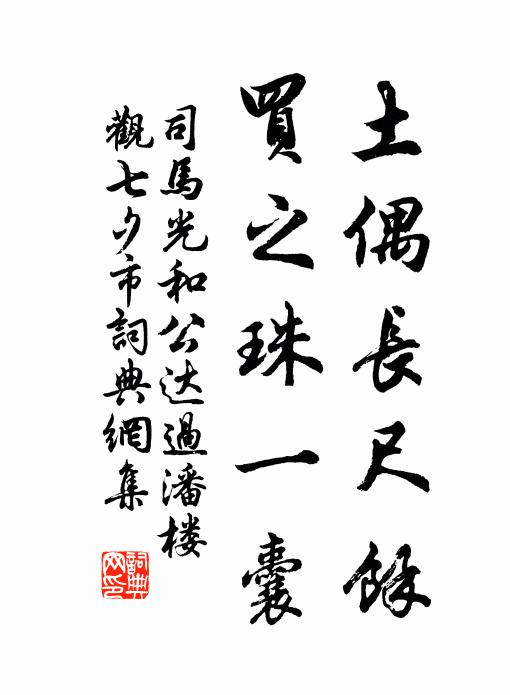 土偶長尺餘
買之珠一囊
司馬光和公达過潘楼
觀七夕市詞典網集
詞典網印